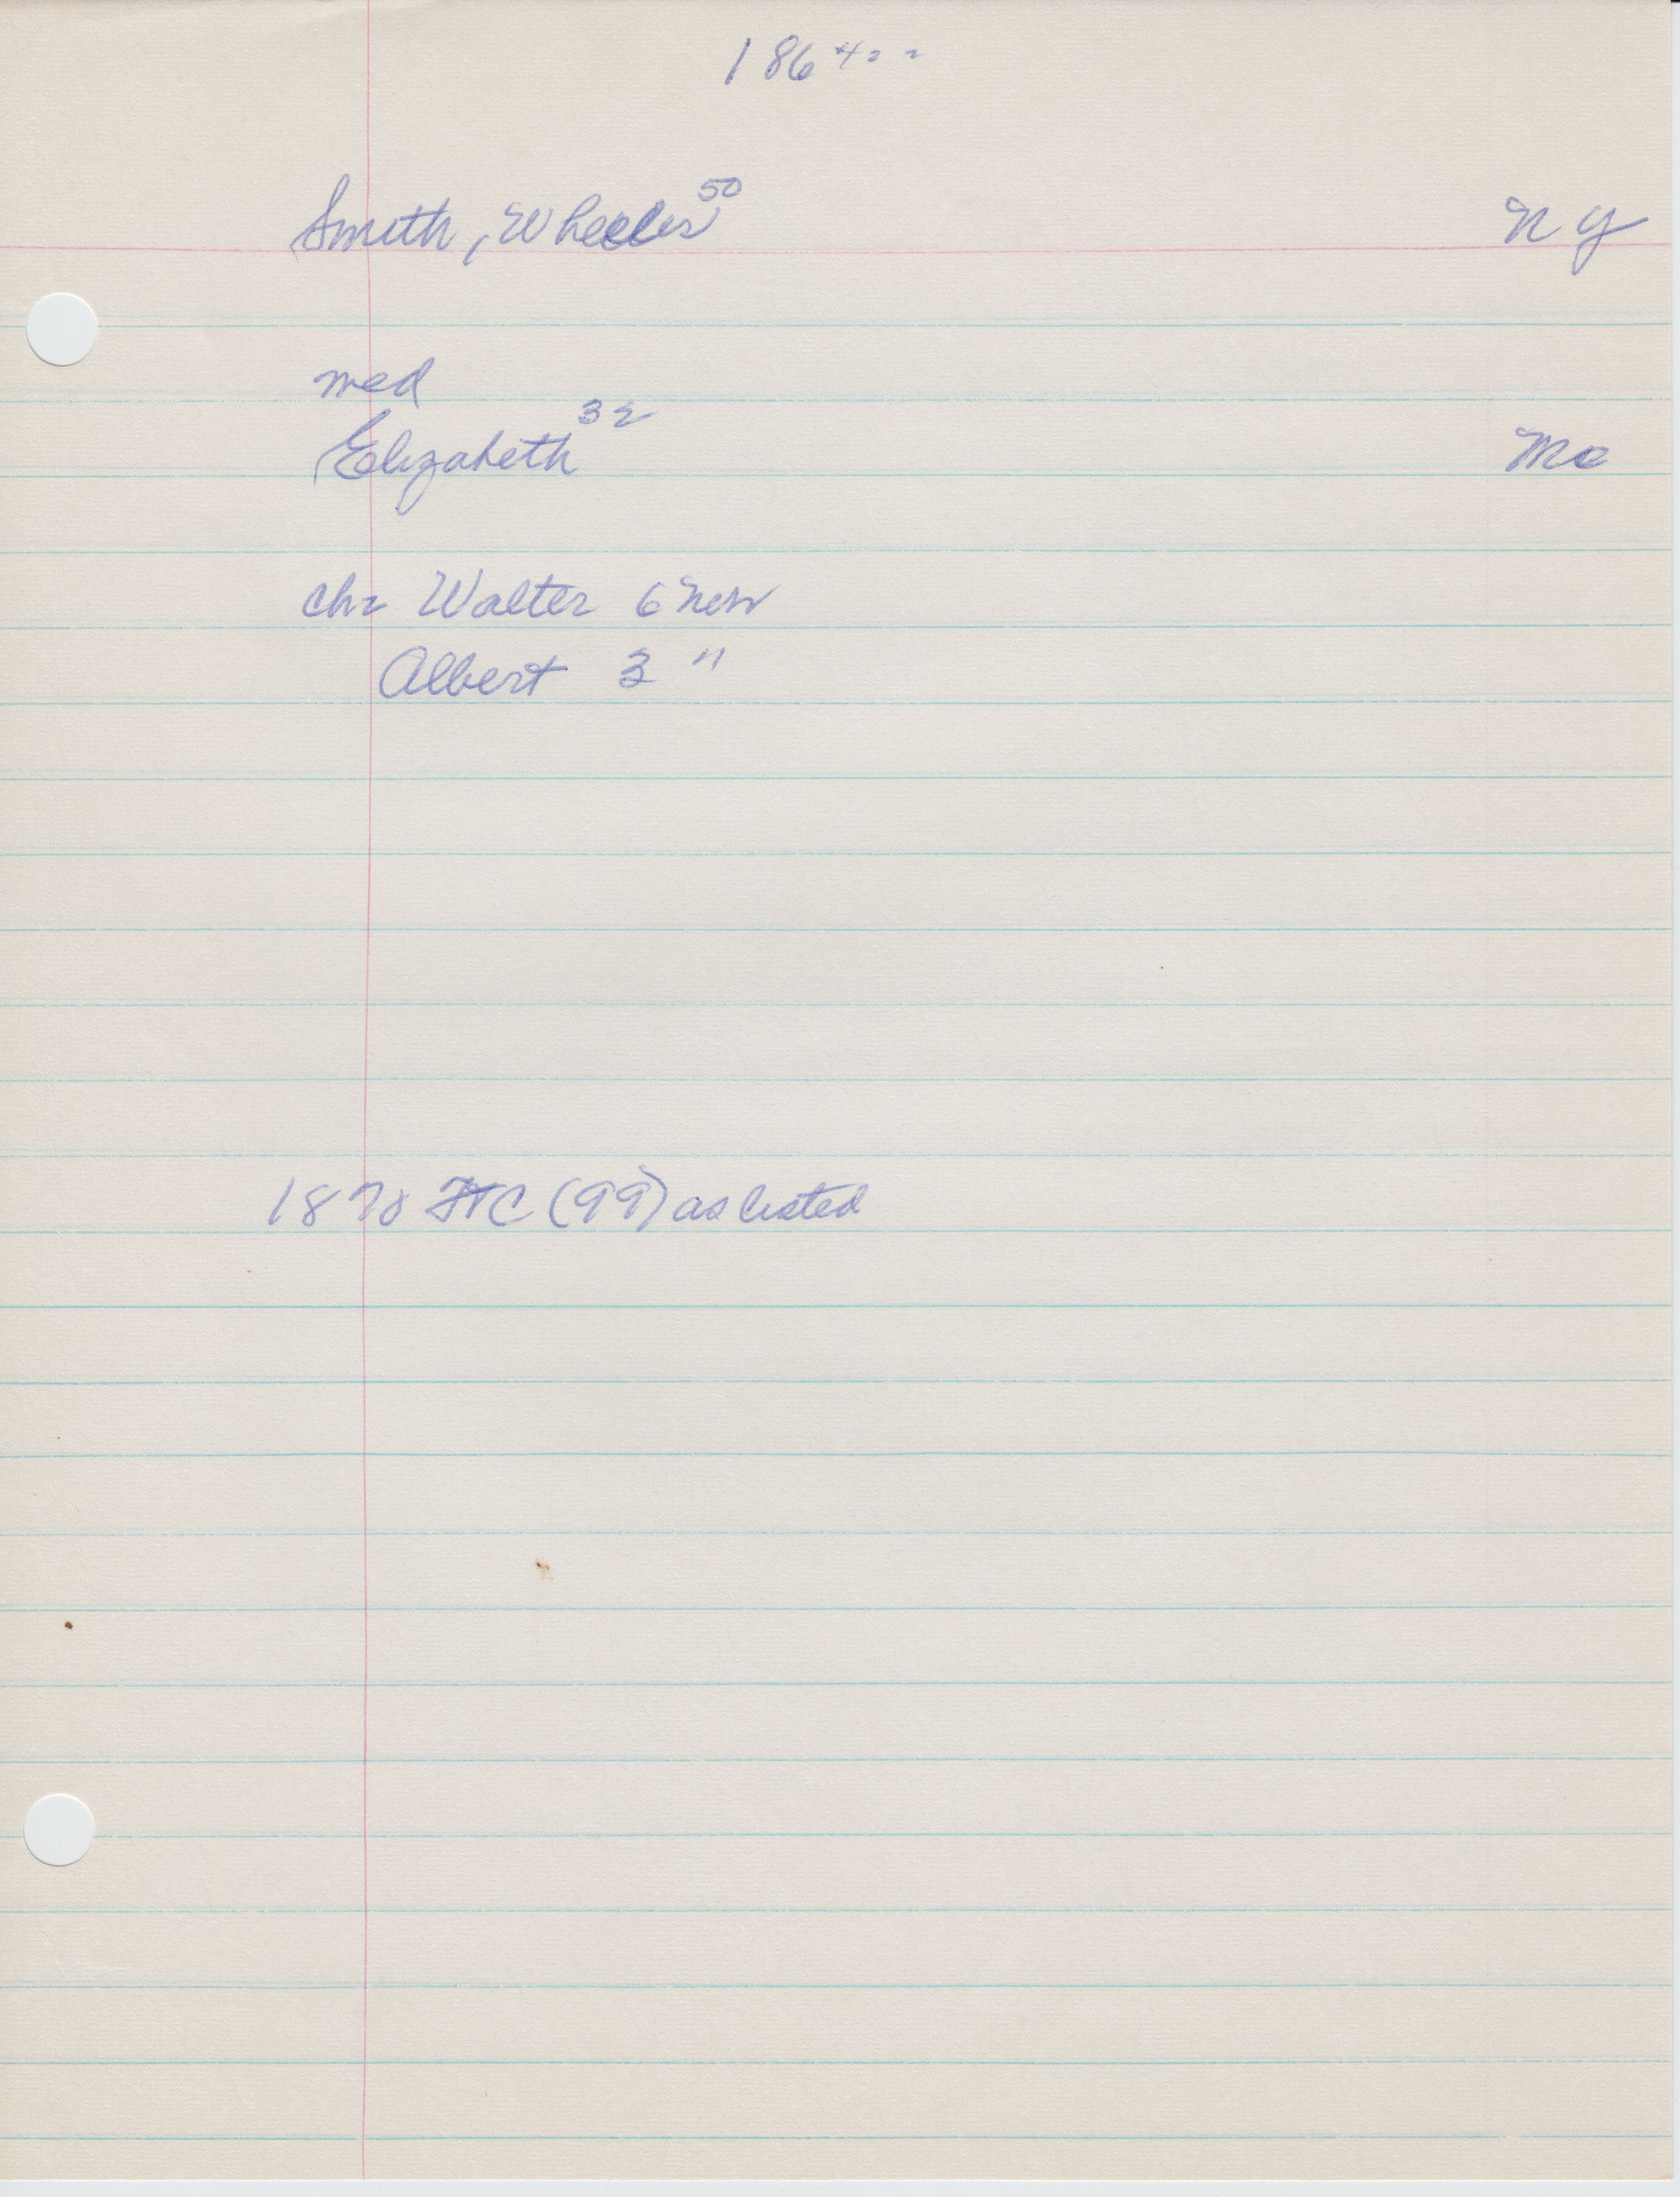 1864--
Smith, Wheeler 50 NY
med
Elizabeth 32 Mo
ch- Walter 6 Nev
Albert 3 "
1870 (99) as listed